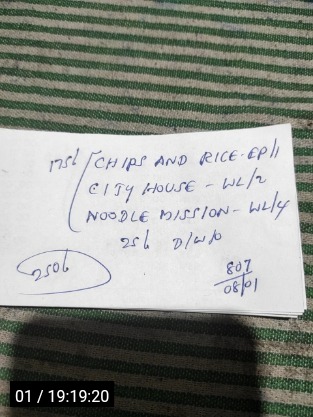 175/- CHIPS AND RICE - EP/1
CITY HOUSE - WL/2
NOODLE MISSION - WL/4
25/- D/W/O
250/-
807
08/01
01 / 19:19:20